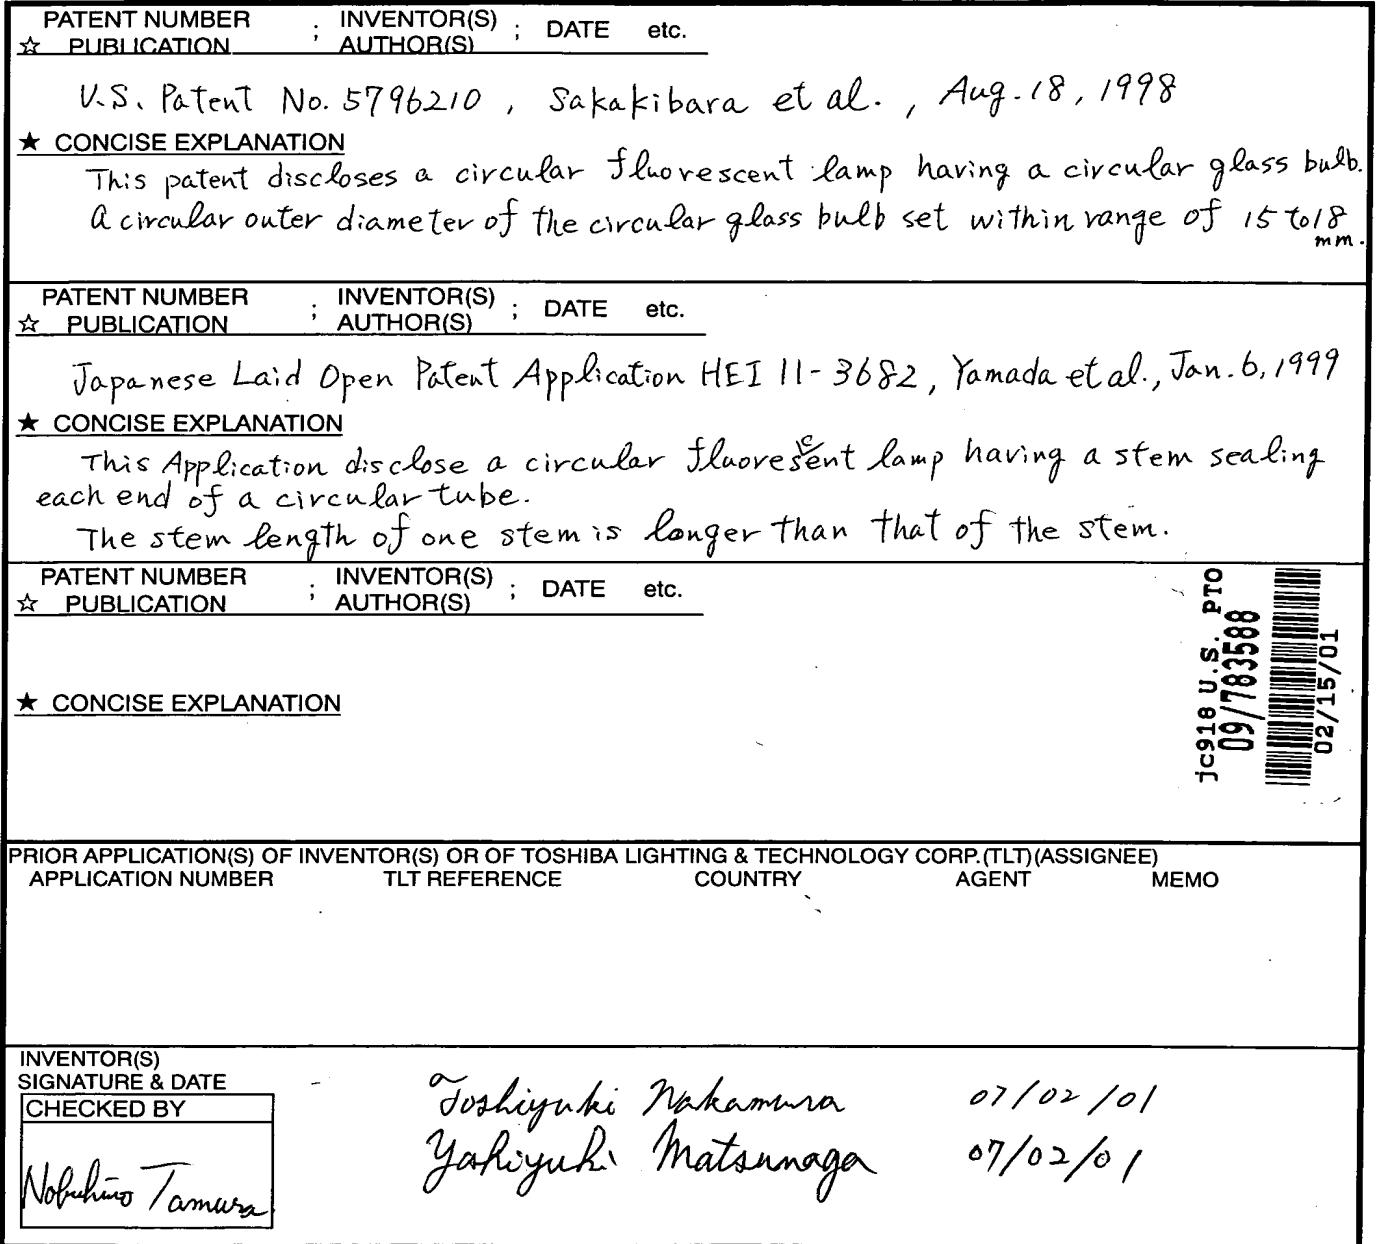 PATENT NUMBER ; INVENTOR(S) ; DATE etc.
☆ PUBLICATION AUTHOR(S)
U.S. Patent No. 5796210 , Sakakibara et al. , Aug. 18, 1998
★ CONCISE EXPLANATION
This patent discloses a circular fluorescent lamp having a circular glass bulb.
A circular outer diameter of the circular glass bulb set within range of 15 to 18
mm.
PATENT NUMBER ; INVENTOR(S) ; DATE etc.
☆ PUBLICATION AUTHOR(S)
Japanese Laid Open Patent Application HEI 11-3682, Yamada et al., Jan. 6, 1999
★ CONCISE EXPLANATION
This Application disclose a circular fluorescent lamp having a stem sealing
each end of a circular tube.
The stem length of one stem is longer than that of the stem.
PATENT NUMBER ; INVENTOR(S) ; DATE etc.
☆ PUBLICATION AUTHOR(S)
★ CONCISE EXPLANATION
jc918 U.S. PTO
09/783588
02/15/01
PRIOR APPLICATION(S) OF INVENTOR(S) OR OF TOSHIBA LIGHTING & TECHNOLOGY CORP.(TLT)(ASSIGNEE)
APPLICATION NUMBER TLT REFERENCE COUNTRY AGENT MEMO
INVENTOR(S)
SIGNATURE & DATE
Toshiyuki Nakamura 07/02/01
CHECKED BY
Yohiyuki Matsunaga 07/02/01
Nobuhiro Tamura